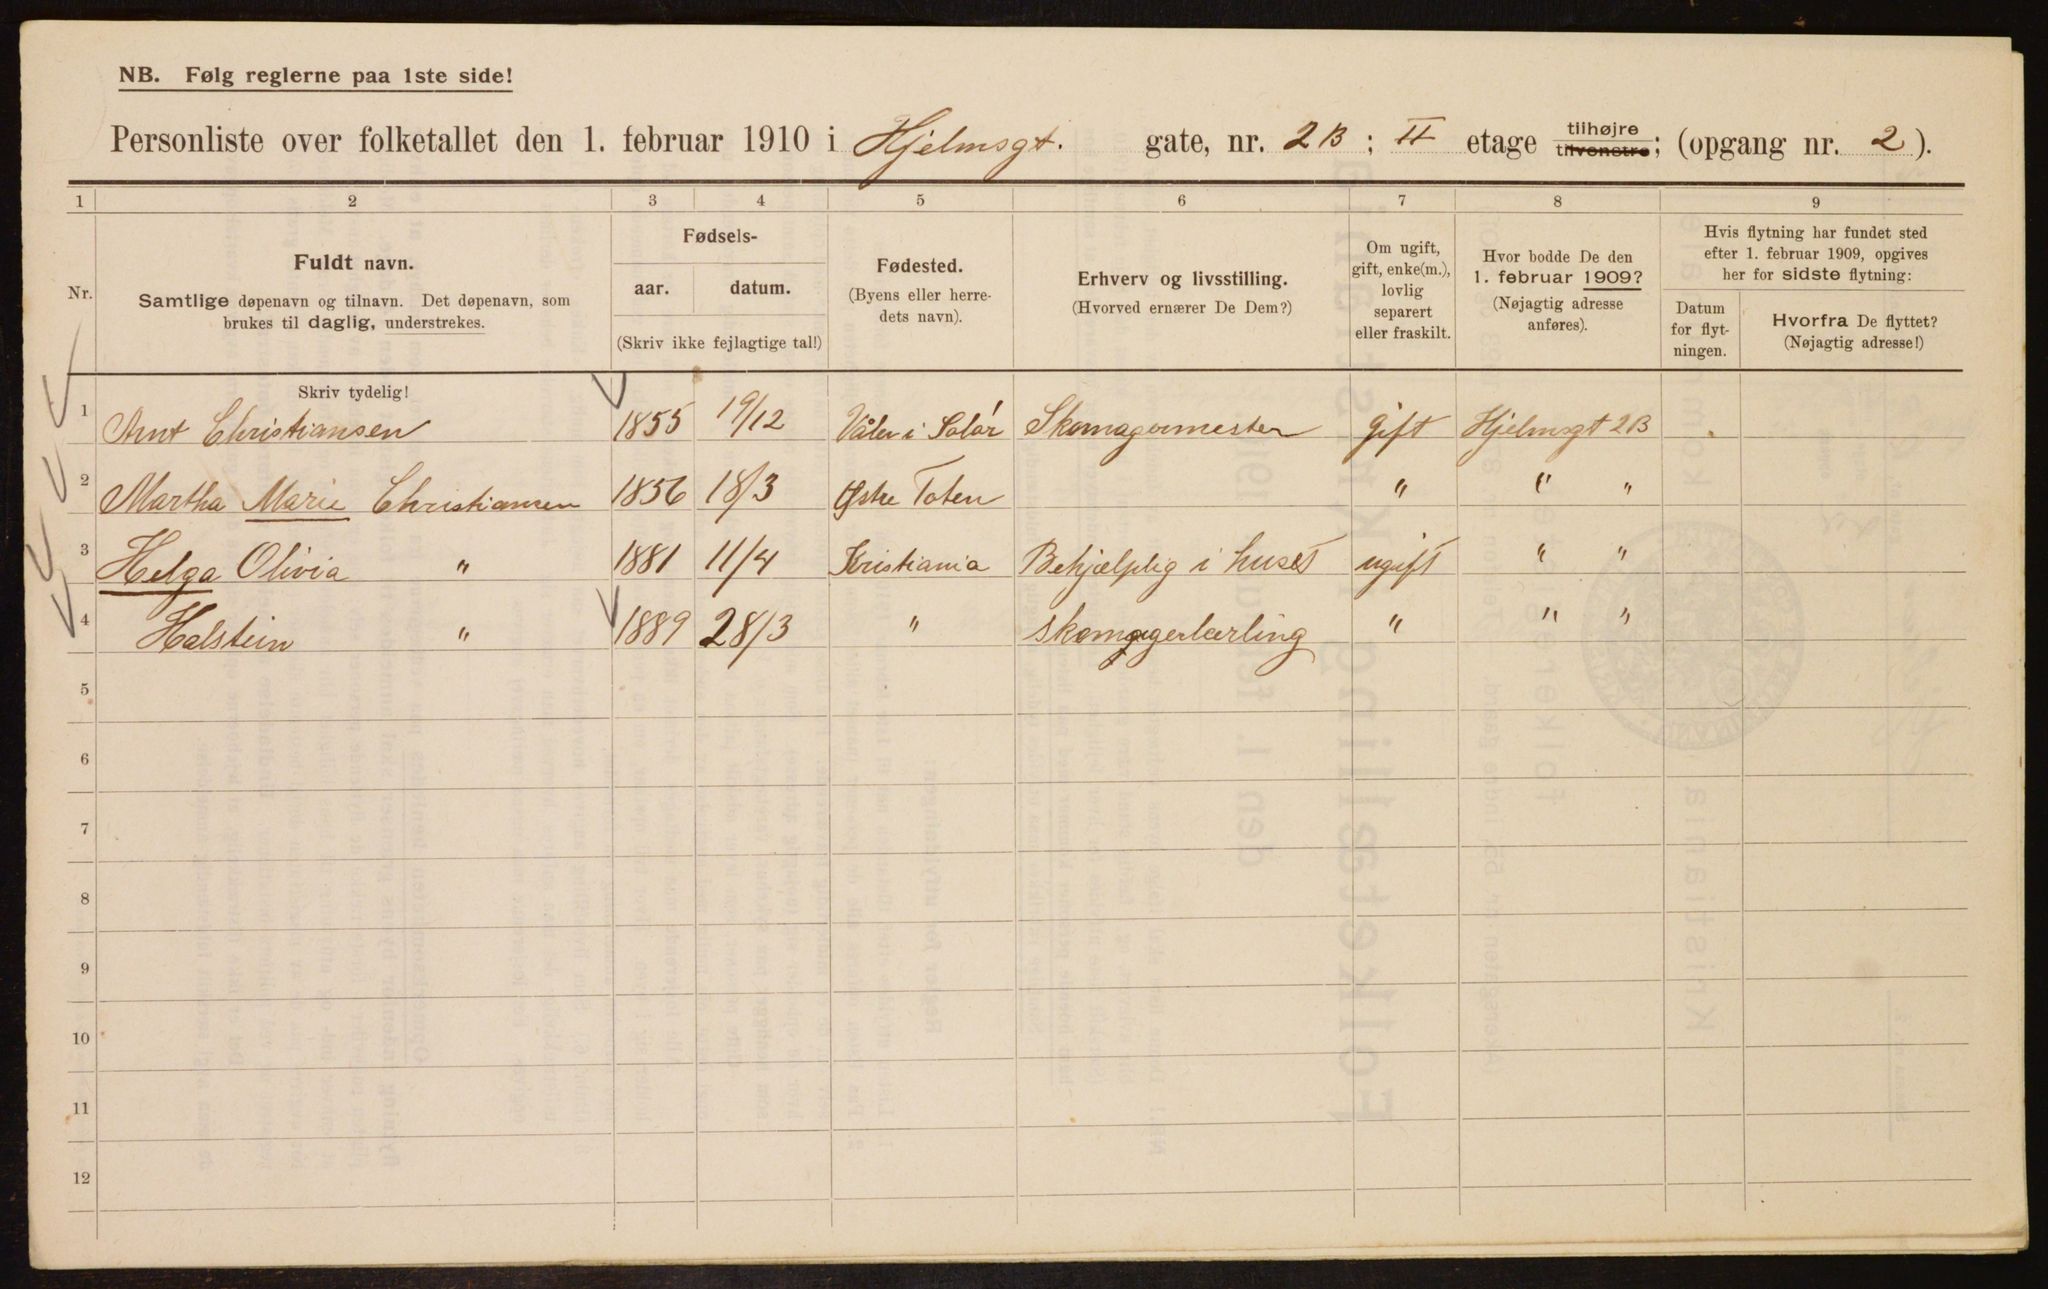 NB. Følg reglerne paa 1ste side!
Personliste over folketallet den 1. februar 1910 i Hjelmsgt. gate, nr. 2B; II etage tilhøjre tilvenstre; (opgang nr. 2).
1 2 3 4 5 6 7 8 9
Nr.
Fuldt navn.
Samtlige døpenavn og tilnavn. Det døpenavn, som
brukes til daglig, understrekes.
Fødsels-
aar. datum.
(Skriv ikke fejlagtige tal!)
Fødested.
(Byens eller herre-
dets navn).
Erhverv og livsstilling.
(Hvorved ernærer De Dem?)
Om ugift,
gift, enke(m.),
lovlig
separert
eller fraskilt.
Hvor bodde De den
1. februar 1909?
(Nøjagtig adresse
anføres).
Hvis flytning har fundet sted
efter 1. februar 1909, opgives
her for sidste flytning:
Datum
for flyt-
ningen.
Hvorfra De flyttet?
(Nøjagtig adresse!)
Skriv tydelig!
1 Arnt Christiansen 1855 19/12 Våler i Solør Skomagermester gift Hjelmsgt 2B
2 Martha Marie Christiansen 1856 18/3 Østre Toten " " "
3 Helga Olivia " 1881 11/4 Kristiania Behjælplig i huset ugift " "
4 Halstein " 1889 28/3 " Skomagerlærling " " "
5
6
7
8
9
10
11
12